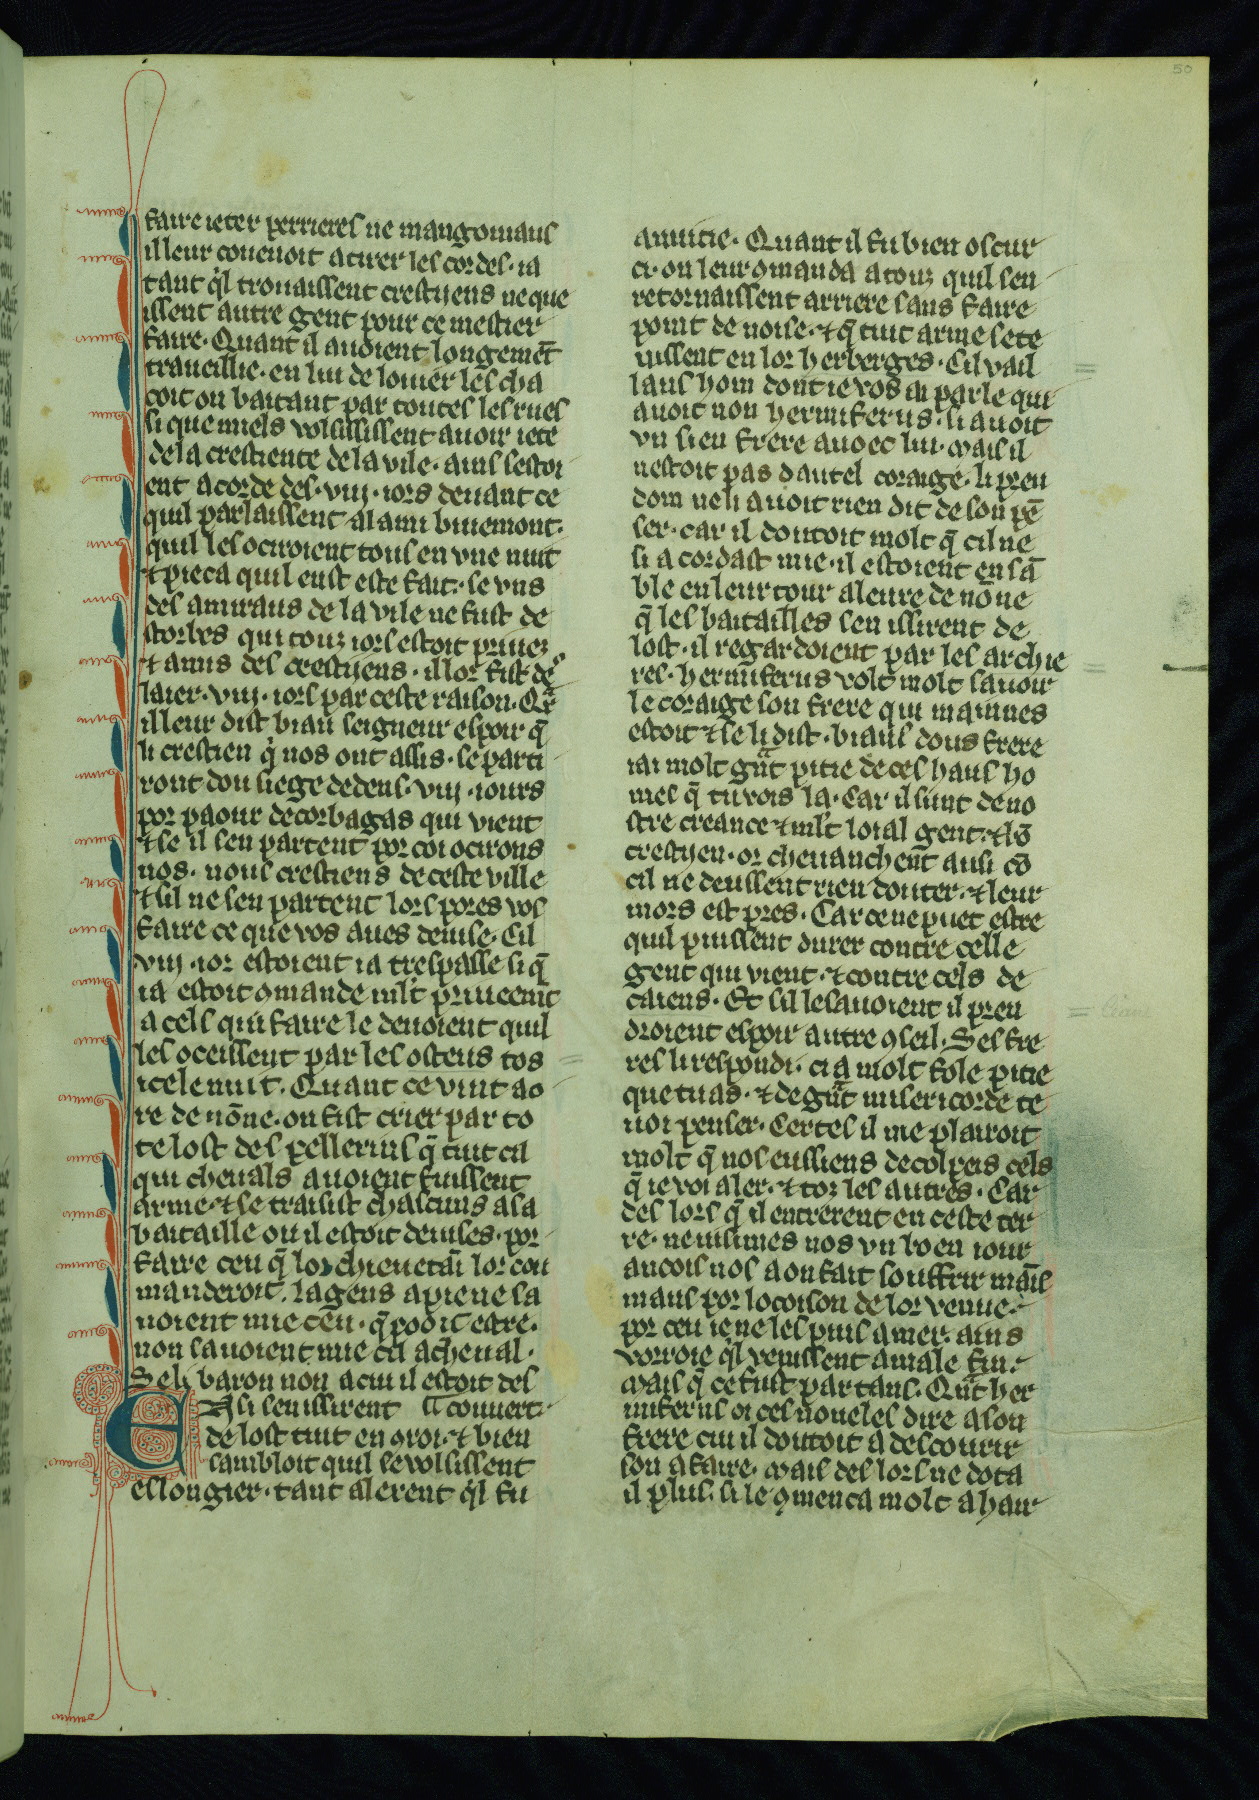 50
faire ieter perrieres ne mangoniaus
il leur couenoit a tirer les cordes. ia
tant q̇l trouaissent crestyens ne que
issent autre gent pour ce mestier
faire. Quant il auoient longemēt
traueillie. en liu de louier les cha
coit on batant par toutes les rues
si que miels volsississent auoir iete
de la crestiente de la vile. ains sestoi
ent acorde des .viij. iors deuant ce
quil parlaissent al ami buiemont.
quil les ociroient tous en vne nuit
⁊ pieca quil eust este fait. se vns
des amiraus de la vile ne fust de
storbes qui touz iors estoit priuez
⁊ amis des crestyens. il lor fist de
laier .viij. iors par ceste raison. Q̄r
il leur dist biau seigneur espoir q̄
li crestien q̇ nos ont assis. se parti
ront dou siege dedens .viij. iours
por paour de corbagas qui vient
⁊ se il sen partent por coi ocirons
nos. nous crestiens de ceste ville
⁊ sil ne sen partent lors pores vos
faire ce que vos aues deuise. Cil
viij .ior estoient ia trespasse si q̄
ia estoit ꝯmande mlt priueemt
a cels qui faire le deuoient quil
les oceissent par les osteus tos
icele nuit. Quant ce vint a o
re de nōne. on fist crier par to
te lost des pellerins q̄ tuit cil
qui cheuals auoient fuissent
arme. ⁊ se traisist chascuns a sa
bataille ou il estoit deuises. por
faire ceu q̄ lor chieuetaī lor con
manderoit. La gens a pie ne sa
uoient mie ceu. q̄ pooit estre.
non sauoient mie cil a cheual.
Se li baron non a cui il estoit des
couuert.
Ensi sen issirent
de lost tuit en ꝯroi. ⁊ bien
sambloit quil se volsissent
eslongier. tant alerent q̇l fu
anuitie. Quant il fu bien oscur
ci. on leur ꝯmanda a touz quil sen
retornaissent arriere sans faire
point de noise. ⁊ q̄ tuit arme se te
nissent en lor herberges. Cil vail
lans hom dont ie vos ai parle qui
auoit non hermiferus. si auoit
vn sien frere auoec lui. mais il
nestoit pas dautel coraige. li preu
dom ne li auoit rien dit de son pē
ser. car il doutoit molt q̄ cil ne
si acordast mie. il estoient en sā
ble en leur tour a leure de nōne
q̄ les batailles sen issirent de
lost. il regardoient par les archie
res. hermiferus volt molt sauoir
le coraige son frere qui mainnes
estoit ⁊ se li dist. biaus dous frere
iai molt gͣnt pitie de ces haus ho
mes q̄ tu vois la. Car il sunt de no
stre creance ⁊ mlt loial gent. ⁊ bō
crestyen. or cheuauchent ausi cō
cil ne deussent rien douter. ⁊ leur
mors est pres. Car ce ne puet estre
quil puissent durer contre celle
gent qui vient. ⁊ contre cels de
caiens. Et sil le sauoient il pren
droient espoir autre ꝯseil. Ses fre
res li respondi. ci a molt fole pitie
que tu as. ⁊ de gͣnt misericorde te
uoi penser. Certes il me plairoit
molt q̄ nos eussiens decolpeis cels
q̄ ie voi aler. ⁊ toz les autres. Car
des lors q̄ il entrerent en ceste ter
re. ne uisimes nos vn boen iour
ancois nos a on fait souffrir maīs
maus por locoison de lor venue.
por ceu ie ne les puis amer. ains
vorroie q̇l venissent a male fin.
mais q̄ ce fust par tans. Qͣnt her
miferus oi ces noueles dire a son
frere cui il doutoit a descourir
son afaire. mais des lors ne dota
il plus. si le ꝯmenca molt a hair